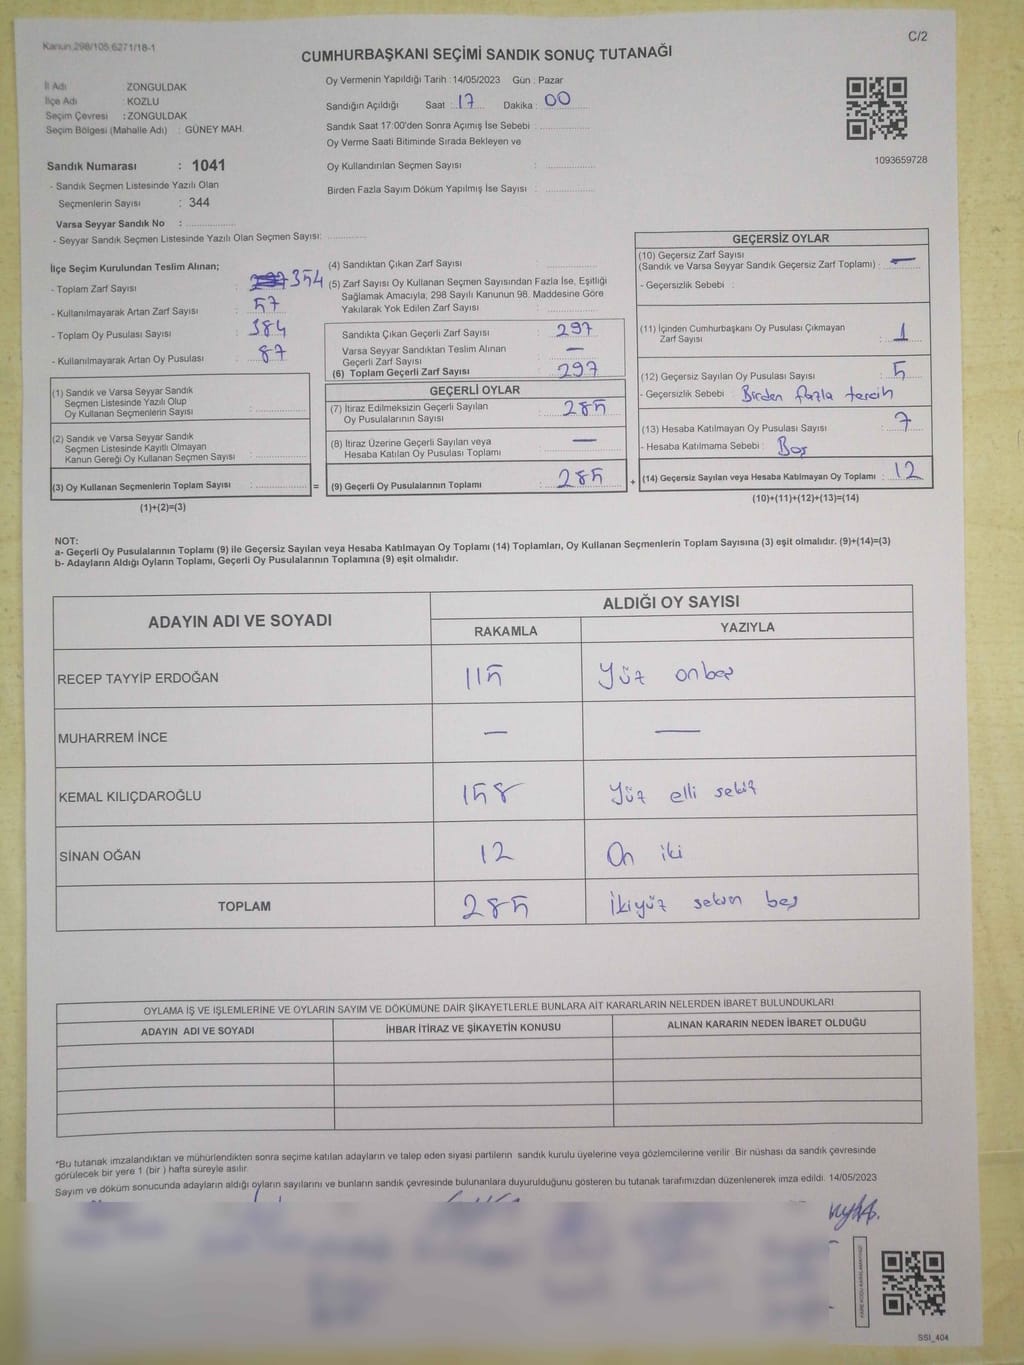 Kanun 298/105 6271/18-1
C/2
CUMHURBAŞKANI SEÇİMİ SANDIK SONUÇ TUTANAĞI
İl Adı ZONGULDAK
İlçe Adı : KOZLU
Seçim Çevresi : ZONGULDAK
Seçim Bölgesi (Mahalle Adı) : GÜNEY MAH.
Sandık Numarası : 1041
- Sandık Seçmen Listesinde Yazılı Olan
Seçmenlerin Sayısı : 344
Varsa Seyyar Sandık No :
- Seyyar Sandık Seçmen Listesinde Yazılı Olan Seçmen Sayısı:
Oy Vermenin Yapıldığı Tarih : 14/05/2023 Gün : Pazar
Sandığın Açıldığı Saat : 17 Dakika : 00
Sandık Saat 17:00'den Sonra Açımış İse Sebebi :
Oy Verme Saati Bitiminde Sırada Bekleyen ve
Oy Kullandırılan Seçmen Sayısı :
Birden Fazla Sayım Döküm Yapılmış İse Sayısı :
1093659728
İlçe Seçim Kurulundan Teslim Alınan;
- Toplam Zarf Sayısı : 354
- Kullanılmayarak Artan Zarf Sayısı : 57
- Toplam Oy Pusulası Sayısı : 384
- Kullanılmayarak Artan Oy Pusulası : 87
(1) Sandık ve Varsa Seyyar Sandık
Seçmen Listesinde Yazılı Olup
Oy Kullanan Seçmenlerin Sayısı :
(2) Sandık ve Varsa Seyyar Sandık
Seçmen Listesinde Kayıtlı Olmayan
Kanun Gereği Oy Kullanan Seçmen Sayısı :
(3) Oy Kullanan Seçmenlerin Toplam Sayısı : =
(1)+(2)=(3)
(4) Sandıktan Çıkan Zarf Sayısı :
(5) Zarf Sayısı Oy Kullanan Seçmen Sayısından Fazla İse, Eşitliği
Sağlamak Amacıyla; 298 Sayılı Kanunun 98. Maddesine Göre
Yakılarak Yok Edilen Zarf Sayısı :
Sandıkta Çıkan Geçerli Zarf Sayısı : 297
Varsa Seyyar Sandıktan Teslim Alınan
Geçerli Zarf Sayısı : —
(6) Toplam Geçerli Zarf Sayısı : 297
GEÇERLİ OYLAR
(7) İtiraz Edilmeksizin Geçerli Sayılan
Oy Pusulalarının Sayısı : 285
(8) İtiraz Üzerine Geçerli Sayılan veya
Hesaba Katılan Oy Pusulası Toplamı : —
(9) Geçerli Oy Pusulalarının Toplamı : 285 +
GEÇERSİZ OYLAR
(10) Geçersiz Zarf Sayısı
(Sandık ve Varsa Seyyar Sandık Geçersiz Zarf Toplamı) : —
- Geçersizlik Sebebi :
(11) İçinden Cumhurbaşkanı Oy Pusulası Çıkmayan
Zarf Sayısı : 1
(12) Geçersiz Sayılan Oy Pusulası Sayısı : 5
- Geçersizlik Sebebi : Birden fazla tercih
(13) Hesaba Katılmayan Oy Pusulası Sayısı : 7
- Hesaba Katılmama Sebebi : Boş
(14) Geçersiz Sayılan veya Hesaba Katılmayan Oy Toplamı : 12
(10)+(11)+(12)+(13)=(14)
NOT:
a- Geçerli Oy Pusulalarının Toplamı (9) ile Geçersiz Sayılan veya Hesaba Katılmayan Oy Toplamı (14) Toplamları, Oy Kullanan Seçmenlerin Toplam Sayısına (3) eşit olmalıdır. (9)+(14)=(3)
b- Adayların Aldığı Oyların Toplamı, Geçerli Oy Pusulalarının Toplamına (9) eşit olmalıdır.
ADAYIN ADI VE SOYADI ALDIĞI OY SAYISI
RAKAMLA YAZIYLA
RECEP TAYYİP ERDOĞAN 115 Yüz onbeş
MUHARREM İNCE — —
KEMAL KILIÇDAROĞLU 158 Yüz elli sekiz
SİNAN OĞAN 12 On iki
TOPLAM 285 İkiyüz seksen beş
OYLAMA İŞ VE İŞLEMLERİNE VE OYLARIN SAYIM VE DÖKÜMÜNE DAİR ŞİKAYETLERLE BUNLARA AİT KARARLARIN NELERDEN İBARET BULUNDUKLARI
ADAYIN ADI VE SOYADI İHBAR İTİRAZ VE ŞİKAYETİN KONUSU ALINAN KARARIN NEDEN İBARET OLDUĞU
*Bu tutanak imzalandıktan ve mühürlendikten sonra seçime katılan adayların ve talep eden siyasi partilerin sandık kurulu üyelerine veya gözlemcilerine verilir. Bir nüshası da sandık çevresinde
görülecek bir yere 1 (bir) hafta süreyle asılır.
Sayım ve döküm sonucunda adayların aldığı oyların sayılarını ve bunların sandık çevresinde bulunanlara duyurulduğunu gösteren bu tutanak tarafımızdan düzenlenerek imza edildi. 14/05/2023
SSI_404